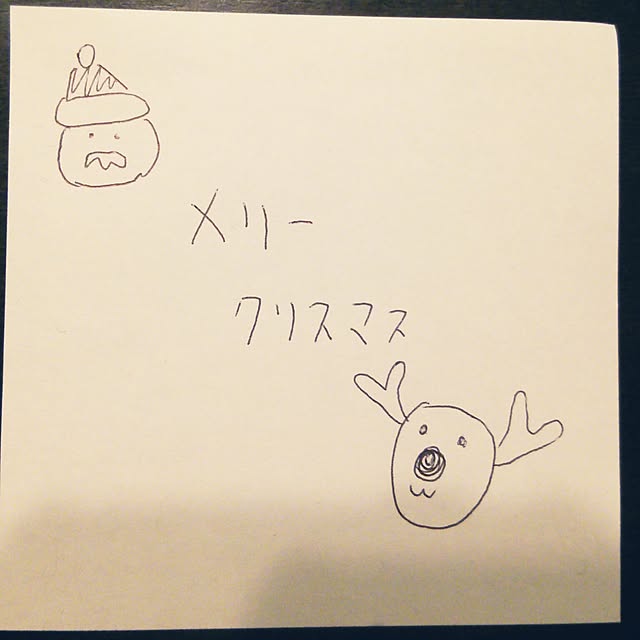 メリー
クリスマス